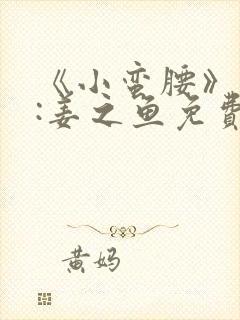 《小蛮腰》
:姜之鱼免費
黄妈